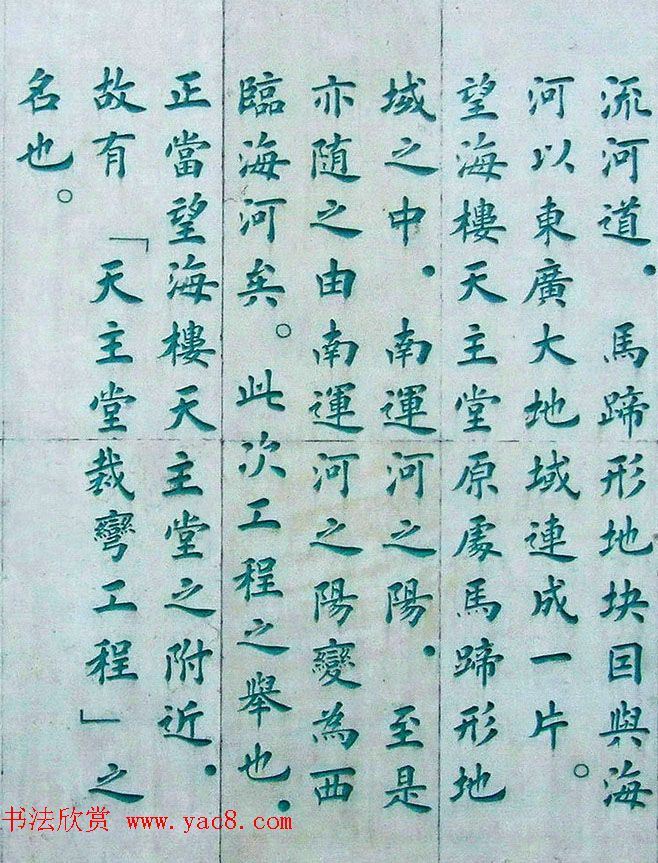 流河道．馬蹄形地块囙與海
河以東廣大地域連成一片。
望海樓天主堂原處馬蹄形地
域之中．南運河之陽．至是
亦随之由南運河之陽變為西
臨海河矣。此次工程之舉也．
正當望海樓天主堂之附近．
故有「天主堂裁彎工程」之
名也。
书法欣赏 www.yac8.com